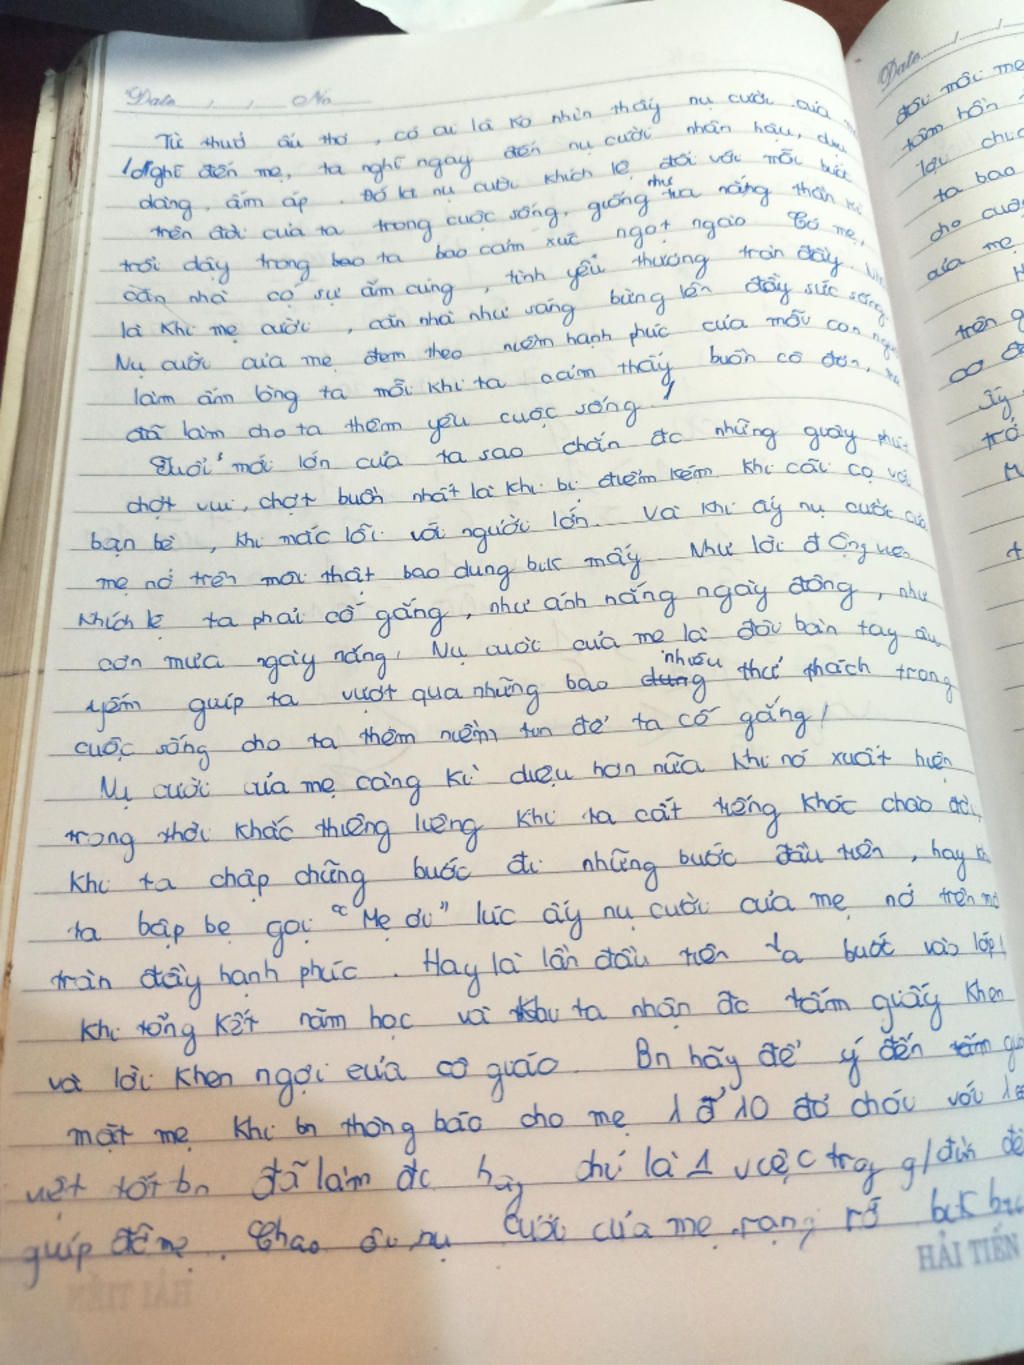 Date , , No
Từ thuở ấu thơ , có ai là ko nhìn thấy nụ cười của
Nghĩ đến mẹ, ta nghĩ ngay đến nụ cười nhân hậu, dịu
dàng, ấm áp . Đó là nụ cười khích lệ đối với mỗi bước
trên đời của ta trong cuộc sống, giống như tia nắng thần kì
trỗi dậy trong ta bao cảm xúc ngọt ngào Có mẹ,
căn nhà có sự ấm cúng , tình yêu thương tràn đầy.
là khi mẹ cười , căn nhà như sáng bừng lên đầy sức sống.
Nụ cười của mẹ đem theo niềm hạnh phúc của mỗi con
làm ấm lòng ta mỗi khi ta cảm thấy buồn cô đơn,
đã làm cho ta thêm yêu cuộc sống
Tuổi mới lớn của ta sao chắn đc những giây phút
chợt vui, chợt buồn nhất là khi bị điểm kém khi cãi cọ với
bạn bè , khi mắc lỗi với người lớn. Và khi ấy nụ cười của
mẹ nở trên môi thật bao dung bik mấy Như lời động viên
khích lệ ta phải cố gắng, như ánh nắng ngày đông , như
cơn mưa ngày nắng, Nụ cười của mẹ là đôi bàn tay âu
yếm giúp ta vượt qua những bao nhiêu thử thách trong
cuộc sống cho ta thêm niềm tin để ta cố gắng!
Nụ cười của mẹ càng kì diệu hơn nữa khi nó xuất hiện
trong thời khắc thiêng liêng khi ta cất tiếng khóc chào đời,
khi ta chập chững bước đi những bước đầu tiên , hay khi
ta bập bẹ gọi "Mẹ ơi" lúc ấy nụ cười của mẹ nở trên môi
tràn đầy hạnh phúc . Hay là lần đầu tiên ta bước vào lớp 1
khi tổng kết năm học và ta nhận đc tấm giấy khen
và lời khen ngợi của cô giáo. Bn hãy để ý đến
mặt mẹ khi bn thông báo cho mẹ 1 đ' 10 đỏ chói với 1
việt tốt bn đã làm đc hay chỉ là 1 việc trog g/đình để
giúp đỡ mẹ. Chao ôi nụ cười của mẹ rạng rỡ bik bao
HẢI TIẾN
Date / /
đôi môi mẹ
tâm hồn
ta bao
cho cuộc
của mẹ
trên